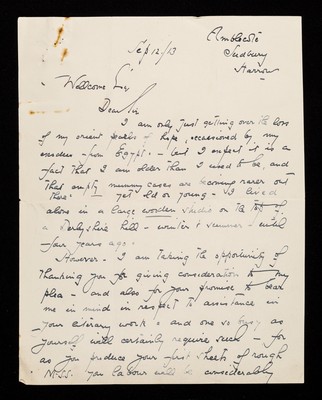 Amblecote
Sudbury
Harrow
Sep 12/13
Wellcome Esq
Dear Sir,
I am only just getting over the loss
of my orient pearls of hope, occasioned by my
exodus from Egypt. - but I expect it is a
fact that I am older than I used to be and
that empty mummy cases are becoming rarer out
there - yet old or young - I lived
alone in a large wooden studio on the top of
a Derbyshire hill - winter & summer - until
four years ago.
However - I am taking the opportunity of
thanking you for giving consideration to my
plea - and also for your promise to bear
me in mind in respect to assistance in
your literary work - and one so busy as
yourself will certainly require such - for
as you produce your first sheets of rough
M.S.S. you labour will be considerably